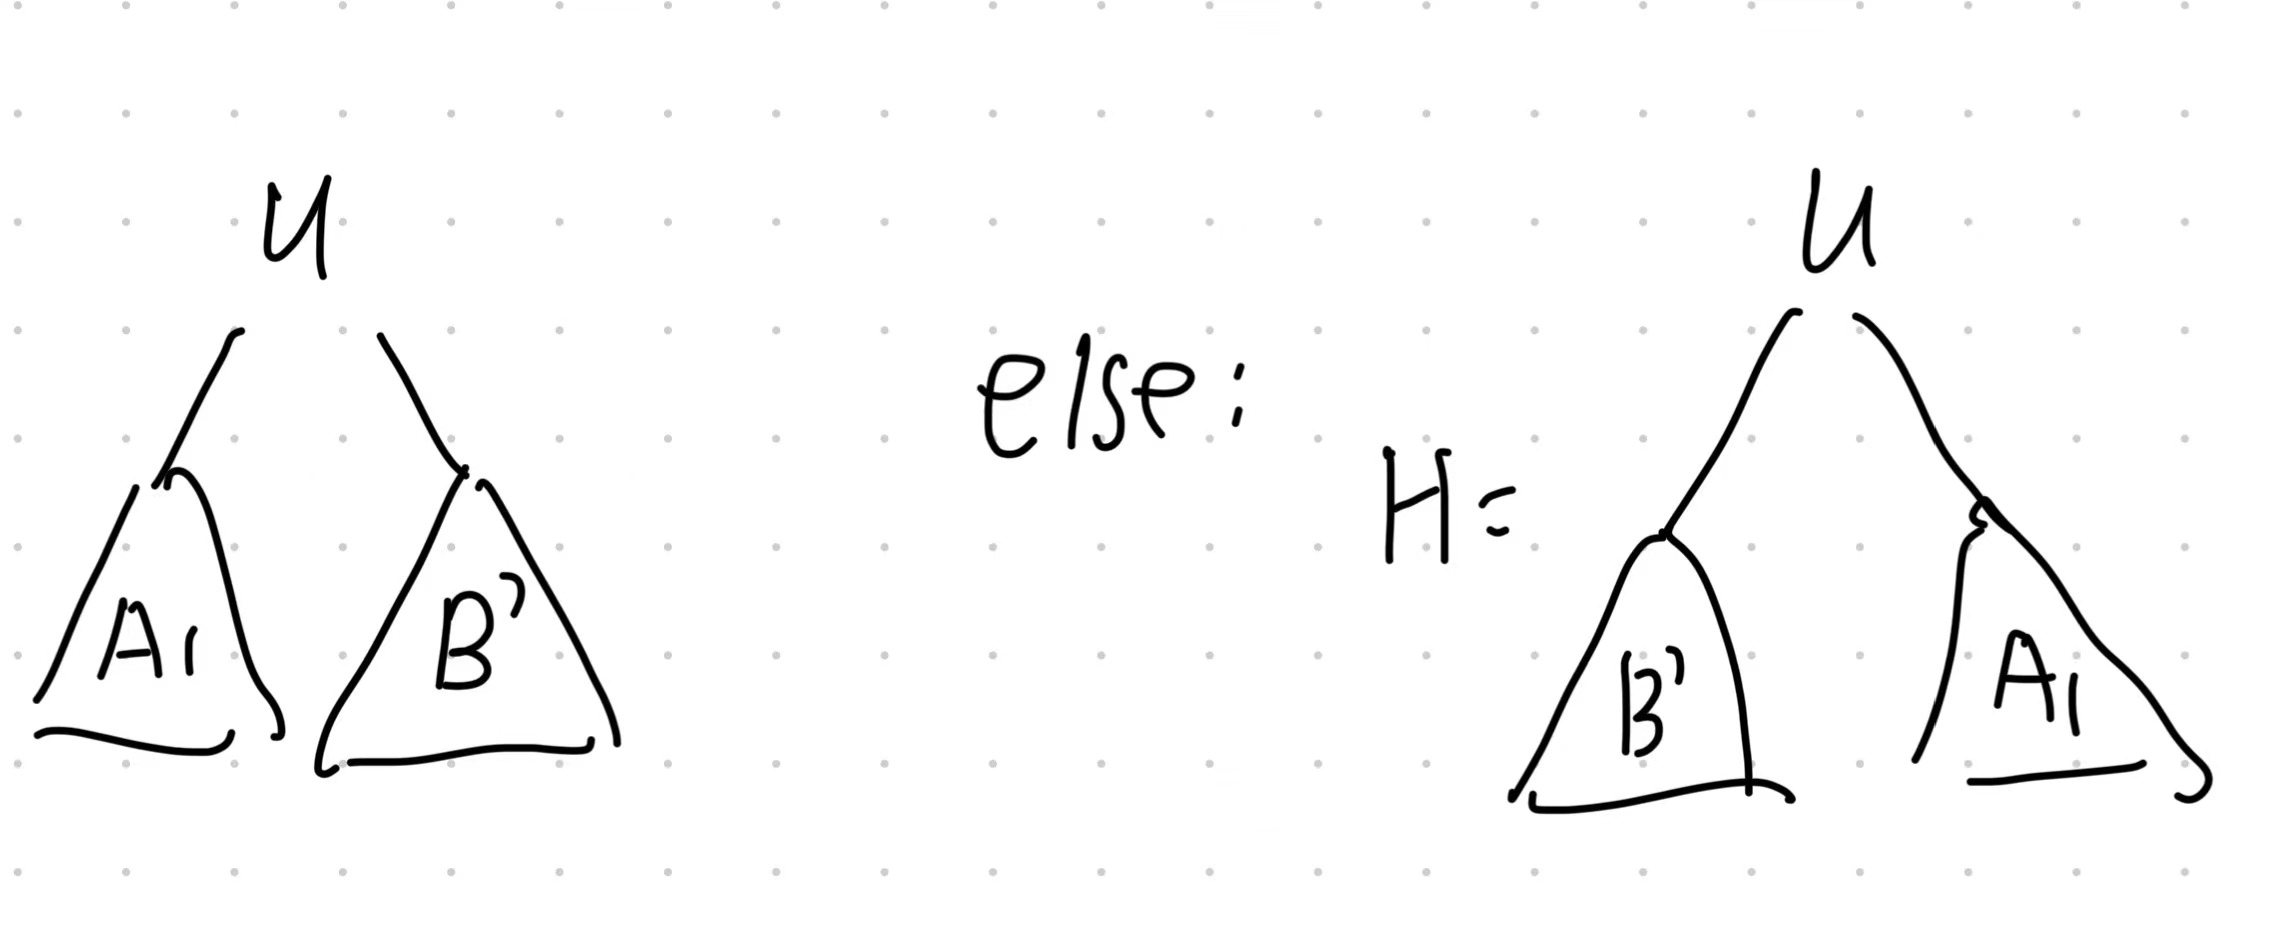 u
A1 B'
else:
H=
u
B' A1